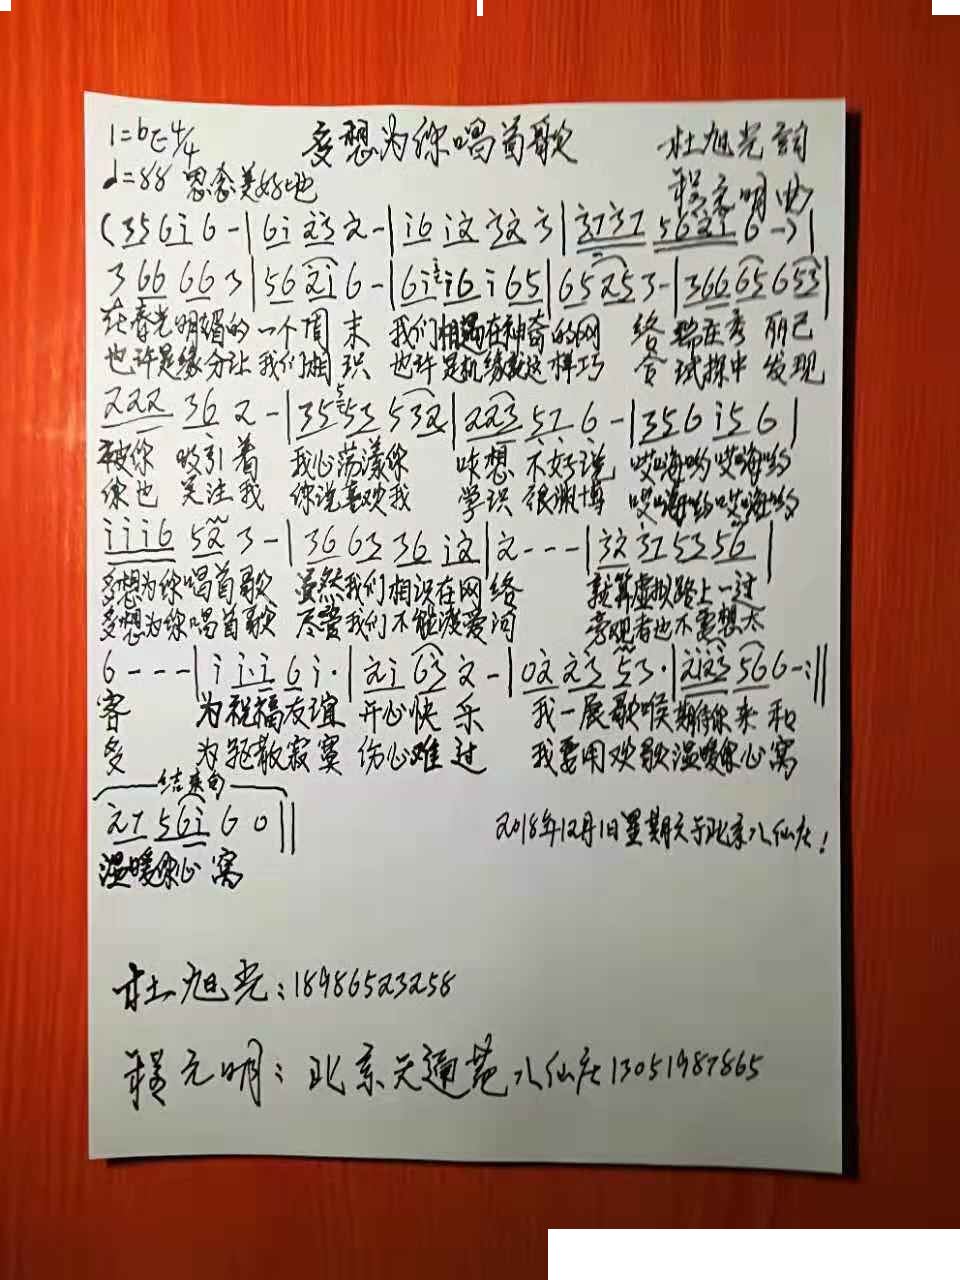 1=bE 4/4 多想为你唱首歌 杜旭光 词
♩=88 思念美好地 程元明 曲
(3 5 6 i 6 - | 6 i 2 3 2 - | i 6 i 2 3 2 3 | 3 1 3 1 5 6 2 1 6 - ) |
3 6 6 6 6 3 | 5 6 2 i 6 - | 6 i i 6 i 6 5 | 6 5 2 5 3 - | 3 6 6 6 5 6 5 3 |
在春光明媚的一个周末 我们相遇在神奇的网络 端庄秀丽已
也许是缘分让我们相识 也许是机缘就这样巧合 试探中发现
2 2 2 3 6 2 - | 3 5 5 3 5 3 2 | 2 2 3 5 1 6 - | 3 5 6 i 5 6 |
被你吸引着 我心荡漾你 咋想不好说 哎嗨哟哎嗨哟
你也关注我 你说喜欢我 学识很渊博 哎嗨哟哎嗨哟
i i i 6 5 2 3 - | 3 6 6 3 3 6 i 2 | 2 - - - | 3 2 3 1 5 3 5 6 |
多想为你唱首歌 虽然我们相识在网络 就算虚拟路上一过
多想为你唱首歌 尽管我们不能渡爱河 旁观者也不要想太
6 - - - | i i i 6 i · | 2 i 6 3 2 - | 0 2 2 3 5 3 · | 2 i 2 3 5 6 6 - :||
客 为祝福友谊 开心快乐 我一展歌喉期待你来和
多 为驱散寂寞 伤心难过 我要用欢歌温暖你心窝
结束句
2 1 5 6 i 6 0 ||
2018年12月1日星期六于北京八仙庄!
温暖你心窝
杜旭光:18986523258
程元明:北京天通苑八仙庄13051987865